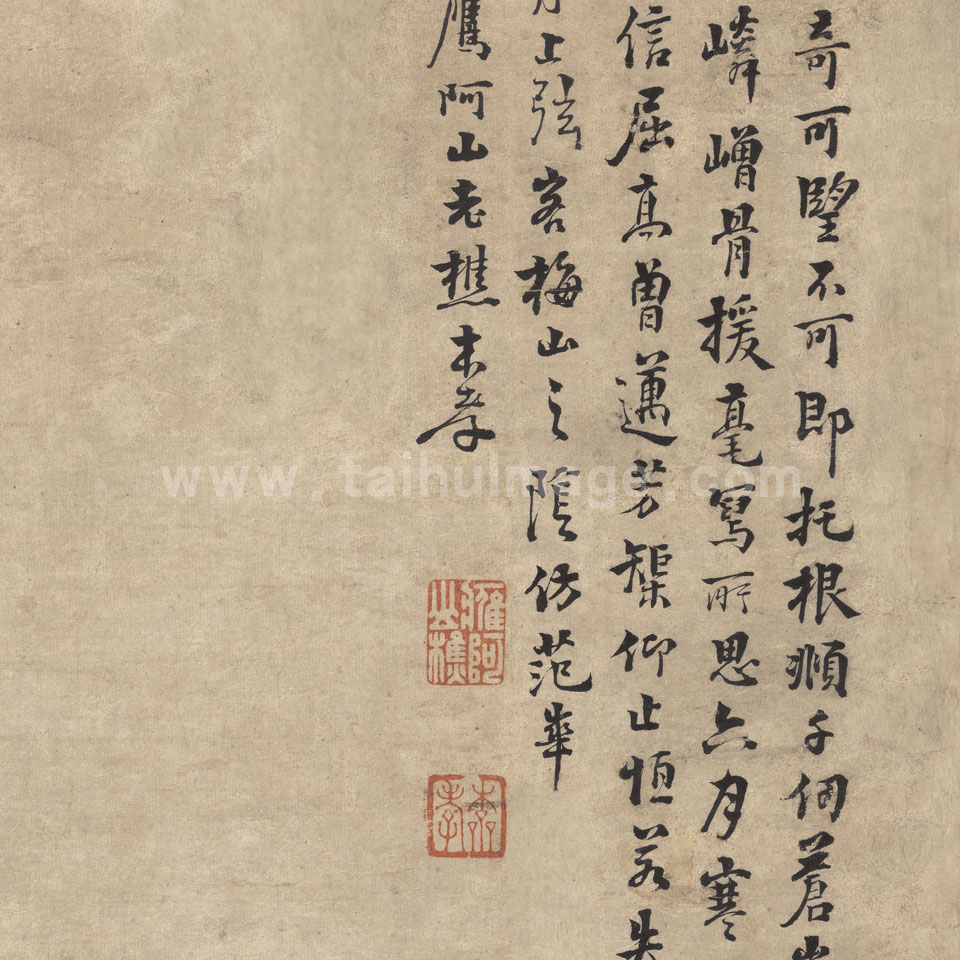 奇可朢不可即托根順千仞蒼
嶙嶒骨援毫寫所思六月寒
信屈高曾邁芳榘仰止恒若失
上弦客梅山之陰仿范華
鷹阿山老樵本孝
鷹阿山樵
本孝
www.taihuimage.com